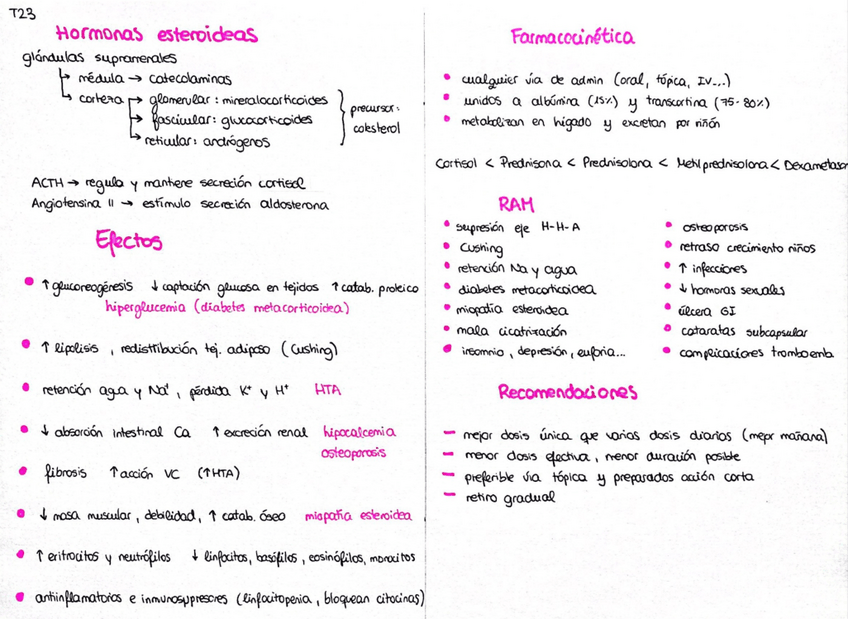 T23
Hormonas esteroideas
glándulas suprarrenales
↳ médula → catecolaminas
↳ corteza → glomerular: mineralocorticoides
→ fascicular: glucocorticoides
↳ reticular: andrógenos
precursor:
colesterol
ACTH → regula y mantiene secreción cortisol
Angiotensina II → estímulo secreción aldosterona
Efectos
• ↑ gluconeogénesis ↓ captación glucosa en tejidos ↑ catab. proteico
hiperglucemia (diabetes metacorticoidea)
• ↑ lipolisis, redistribución tej. adiposo (Cushing)
• retención agua y Na⁺, pérdida K⁺ y H⁺ HTA
• ↓ absorción intestinal Ca ↑ excreción renal hipocalcemia
osteoporosis
• fibrosis ↑ acción VC (↑HTA)
• ↓ masa muscular, debilidad, ↑ catab. óseo miopatía esteroidea
• ↑ eritrocitos y neutrófilos ↓ linfocitos, basófilos, eosinófilos, monocitos
• antiinflamatorios e inmunosupresores (linfocitopenia, bloquean citocinas)
Farmacocinética
• cualquier vía de admin (oral, tópica, IV...)
• unidos a albúmina (15%) y transcortina (75-80%)
• metabolizan en hígado y excretan por riñón
Cortisol < Prednisona < Prednisolona < Metilprednisolona < Dexametason
RAM
• supresión eje H-H-A
• Cushing
• retención Na y agua
• diabetes metacorticoidea
• miopatía esteroidea
• mala cicatrización
• insomnio, depresión, euforia...
• osteoporosis
• retraso crecimiento niños
• ↑ infecciones
• ↓ hormonas sexuales
• úlcera GI
• cataratas subcapsular
• complicaciones tromboemb
Recomendaciones
– mejor dosis única que varias dosis diarias (mejor mañana)
– menor dosis efectiva, menor duración posible
– preferible vía tópica y preparados acción corta
– retiro gradual